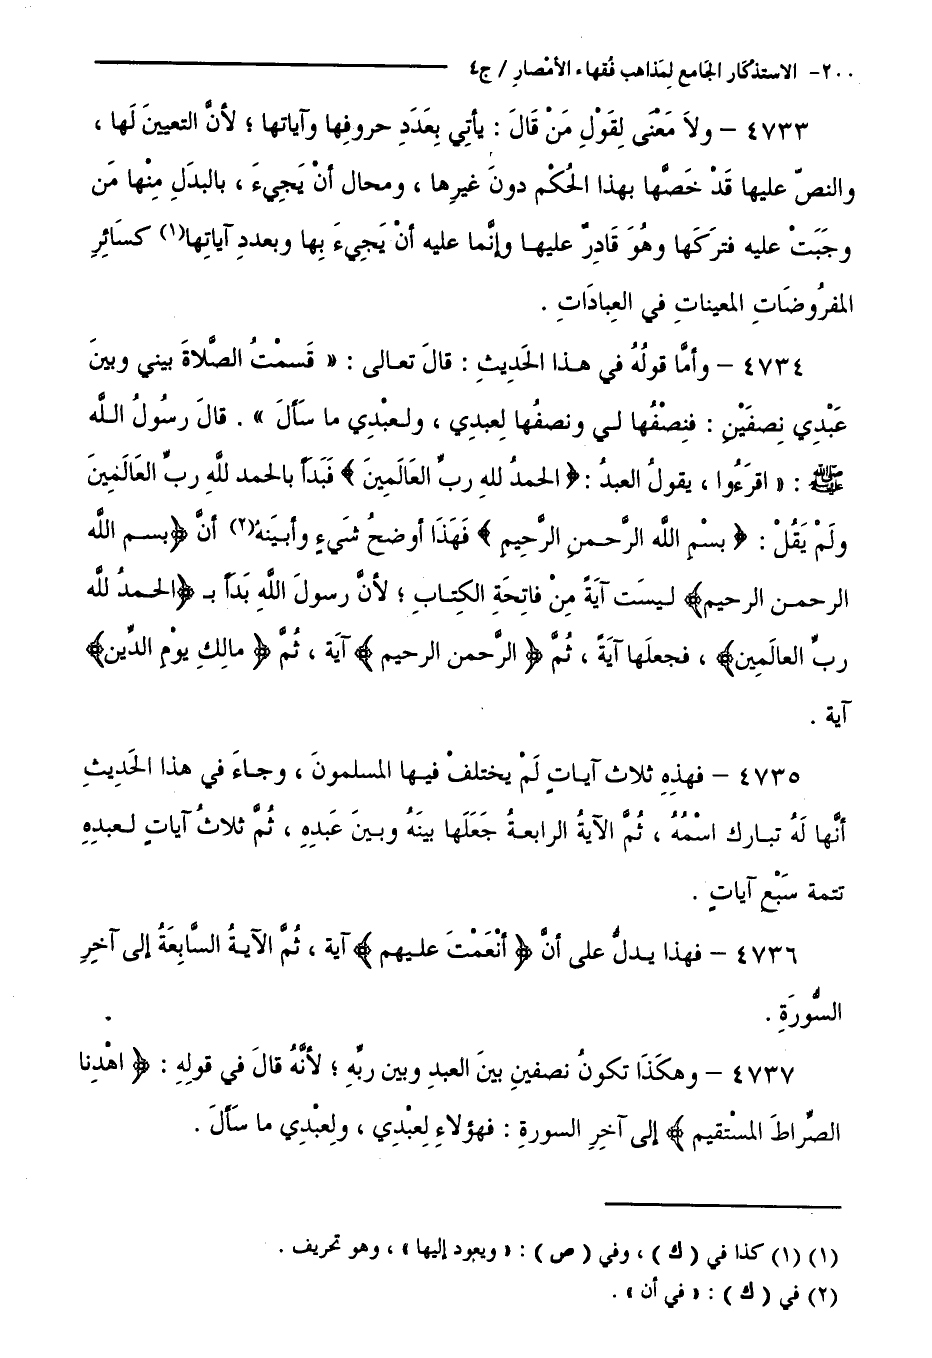 ٢٠٠- الاستذكار الجامع لمذاهب فُقهاء الأمْصار / ج٤
٤٧٣٣ – ولاَ مَعْنَى لِقَوْلِ مَنْ قَالَ : يأتِي بِعَدَدِ حروفِها وآياتها ؛ لأنَّ التعيينَ لَها ،
والنصّ عليها قَدْ خَصَّها بهذا الحُكْم دونَ غيرِها ، ومحال أنْ يَجِيءَ ، بالبدَلِ مِنْها مَن
وجَبَتْ عليه فترَكَها وهُوَ قَادِرٌ عليهـا وإنَّما عليه أنْ يَجِيءَ بِها وبعددِ آياتِها(١) كسَائِرِ
المفرُوضَاتِ المعيناتِ في العِبادَاتِ .
٤٧٣٤ – وأمَّا قولُهُ في هـذا الحَديثِ : قالَ تعـالى : « قَسمْتُ الصَّلاةَ بيني وبينَ
عَبْدِي نِصفَيْنِ : فنِصْفُها لـي ونصفُها لِعبدِي ، ولـعبْدِي ما سَأَلَ » . قالَ رسُولُ اللَّه
ﷺ : « اقرَءُوا ، يقولُ العبدُ : ﴿ الحمدُ لله ربِّ العَالَمِينَ ﴾ فَبَدَأ بالحمد للَّهِ ربِّ العَالَمِينَ
ولَمْ يَقُلْ : ﴿ بسْمِ اللَّه الرَّحـمنِ الرَّحِيمِ ﴾ فَهَذَا أوضحُ شَيءٍ وأبيَنَهُ(٢) أنَّ ﴿بسـم اللَّه
الرحمـن الرحيم﴾ لـيسَت آيَةً مِنْ فاتِحَةِ الكِتـابِ ؛ لأنَّ رسولَ اللَّهِ بَدَأ بـ ﴿الحـمدُ للَّه
ربِّ العالَمِين﴾ ، فجعلَها آيَةً ، ثُمَّ ﴿ الرَّحمن الرحيم ﴾ آية ، ثُمَّ ﴿ مالِكِ يوْمِ الدِّينِ﴾
آية .
٤٧٣٥ – فهذِهِ ثلاث آيـاتٍ لَمْ يختلفْ فيـها المسلمونَ ، وجـاءَ في هذا الحَدِيثِ
أنَّها لَهُ تبـارك اسْمُهُ ، ثُمَّ الآيةُ الرابعـةُ جَعَلَها بينَهُ وبـينَ عَبدِهِ ، ثُمَّ ثلاثُ آياتٍ لـعبدِهِ
تتمة سَبْعِ آياتٍ .
٤٧٣٦ – فهذا يـدلُّ على أنَّ ﴿ أنْعَمْتَ علـيهم ﴾ آية ، ثُمَّ الآيـةُ السَّابِعَةُ إلى آخرِ
السُّورَةِ .
٤٧٣٧ – وهكَذَا تكونُ نصفينِ بينَ العبدِ وبين ربِّهِ ؛ لأنَّهُ قالَ في قولِهِ : ﴿ اهْدِنا
الصِّراطَ المسْتقيم ﴾ إلى آخرِ السورةِ : فهؤلاءِ لِعبْدِي ، ولِعبْدِي ما سَأَلَ .
(١) (١) كذا في ( ك ) ، وفي ( ص ) : « ويعود إليها » ، وهو تحريف .
(٢) في ( ك ) : « في أن » .